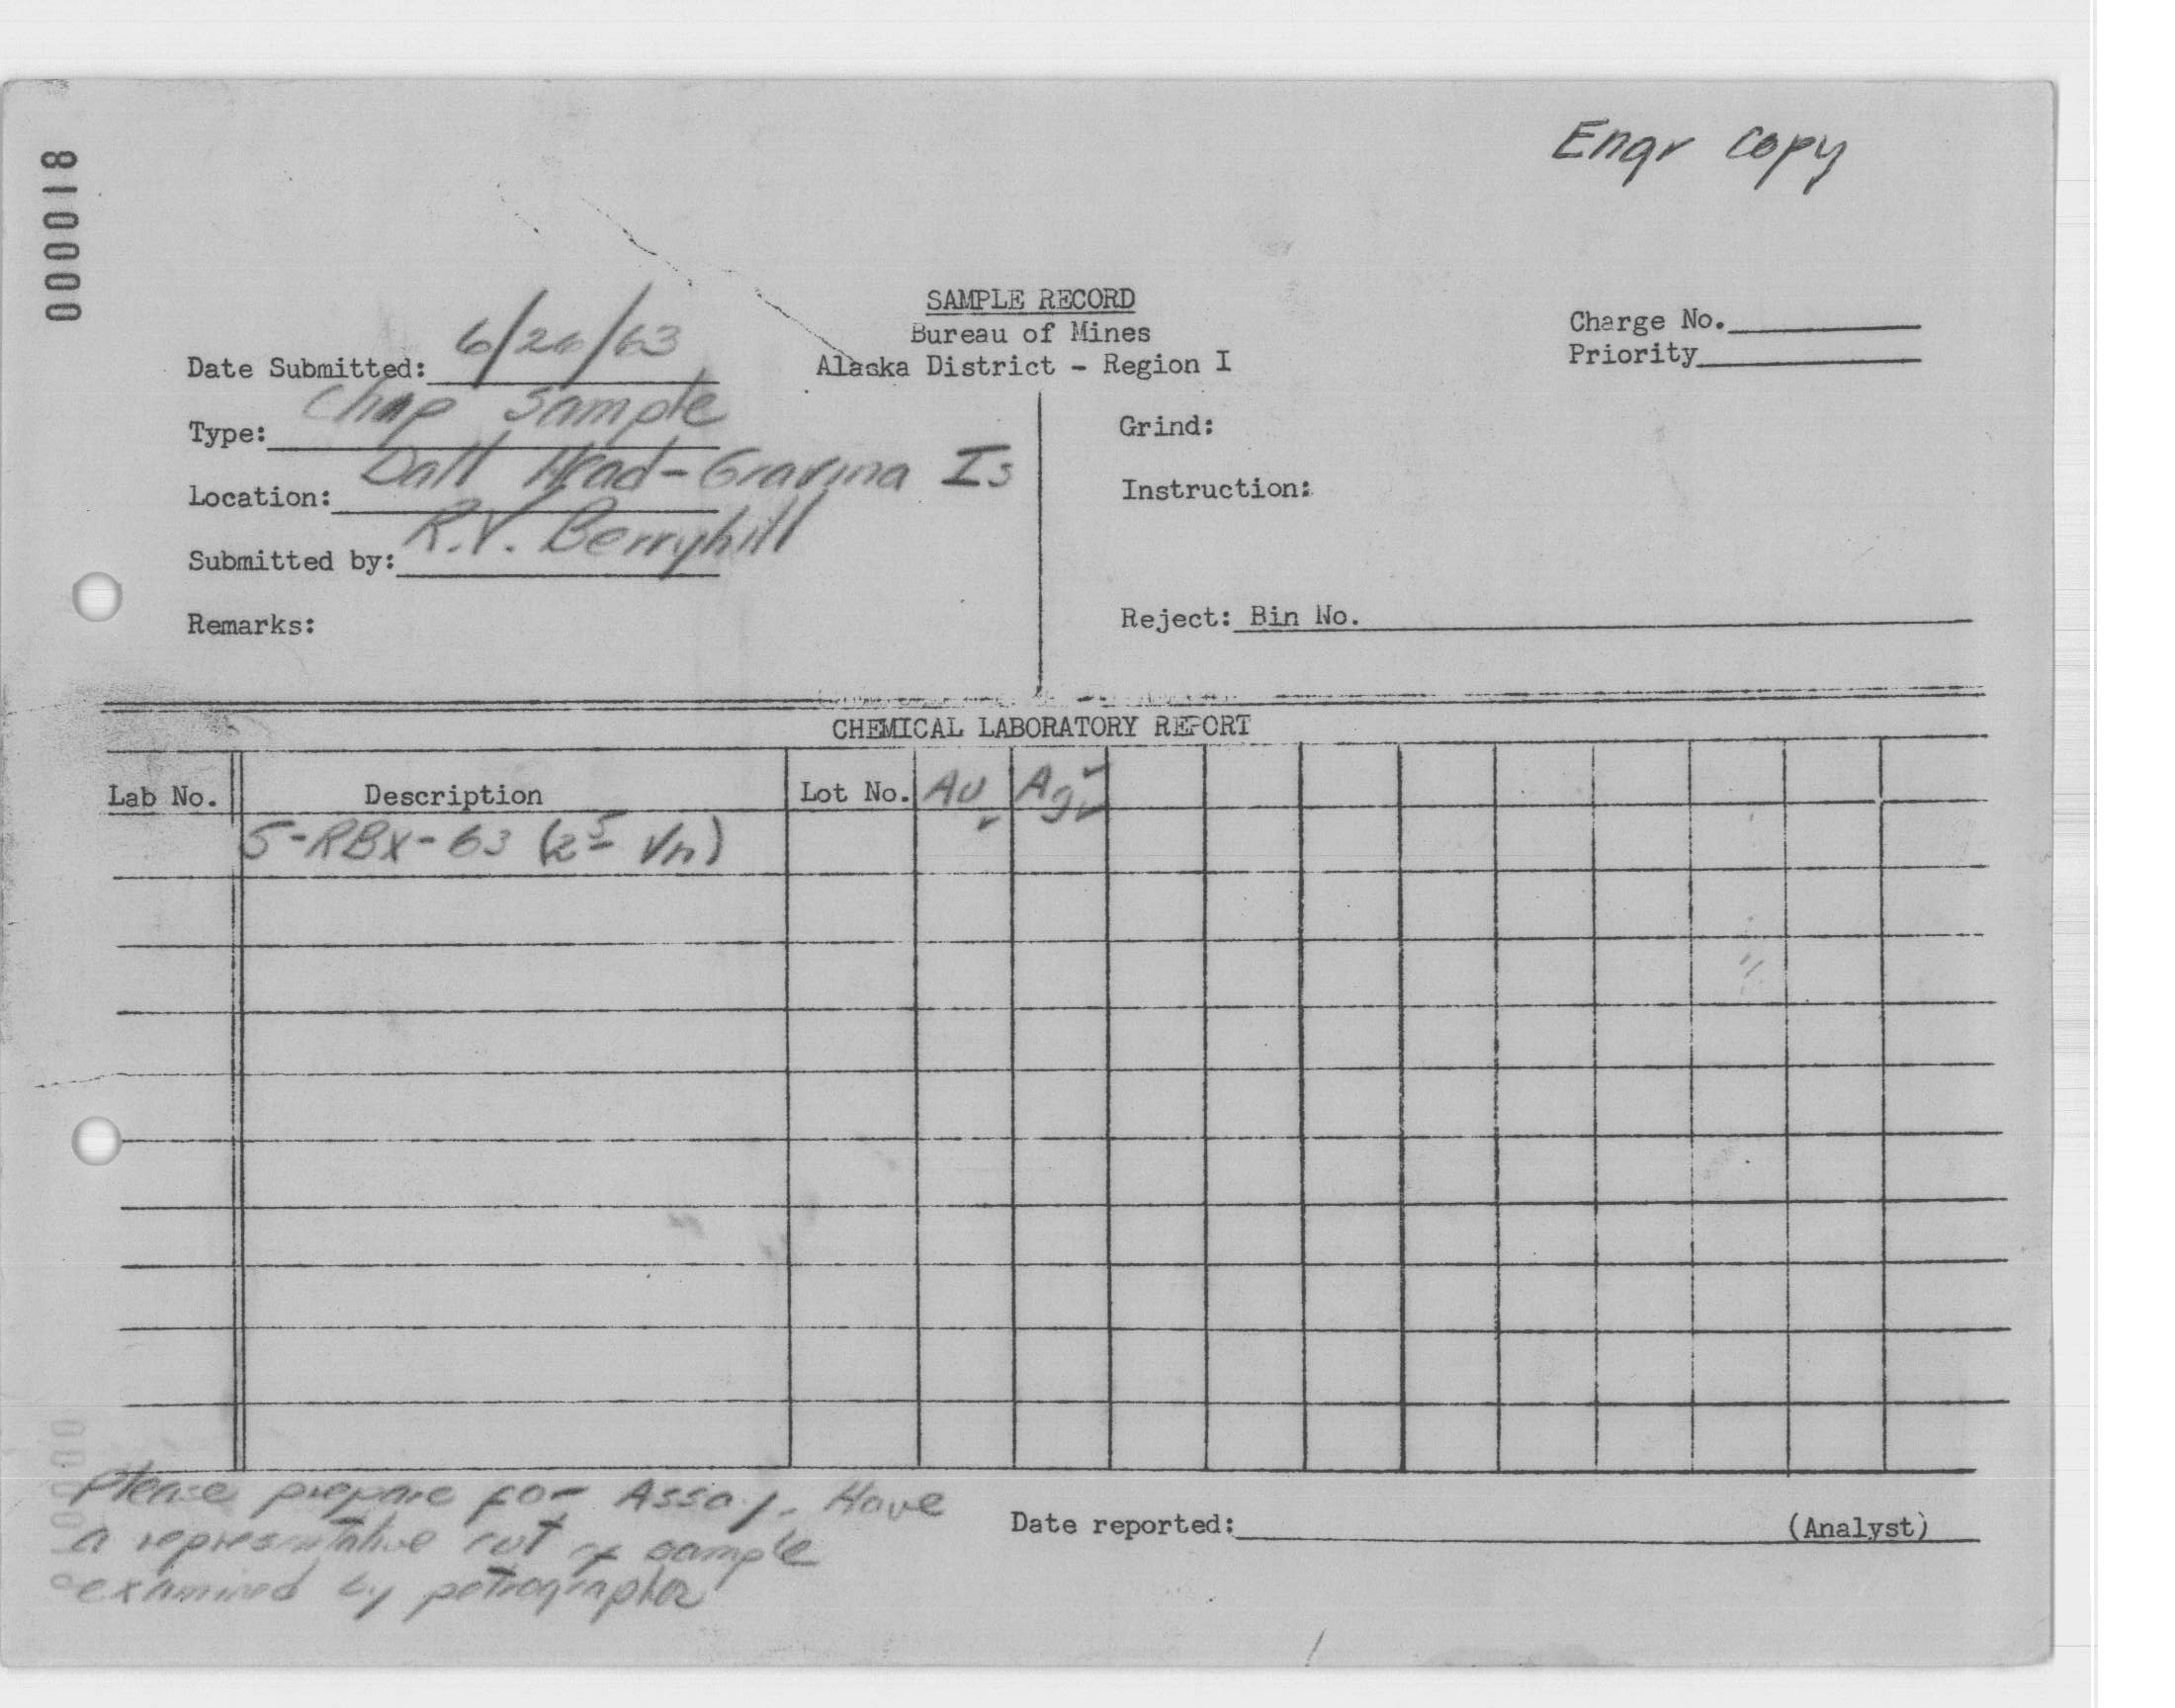 000018
Engr Copy
SAMPLE RECORD
Bureau of Mines
Alaska District - Region I
Charge No.
Priority
Date Submitted: 6/26/63
Type: Chip Sample
Location: Dall Head-Gravina Is
Submitted by: R.V. Berryhill
Remarks:
Grind:
Instruction:
Reject: Bin No.
CHEMICAL LABORATORY REPORT
Lab No. Description Lot No. Au Ag
5-RBX-63 (2 5 Vn)
Please prepare for Assay. Have
a representative cut of sample
examined by petrographer
Date reported: (Analyst)